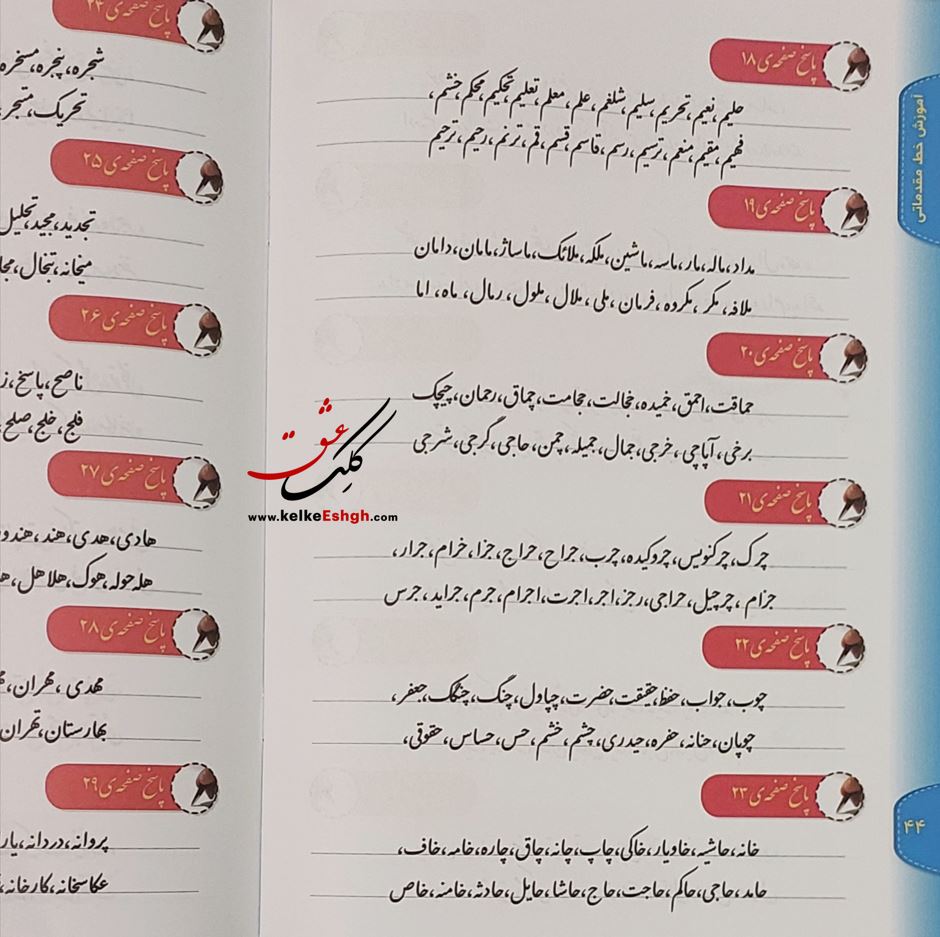 آموزش خط مقدماتی
پاسخ صفحه‌ی ۱۸
حلیم، نعیم، تحریم، سلیم، شلغم، علم، معلم، تعلیم، تحکیم، محکم، خشم،
فهیم، مقیم، منعم، ترسیم، رسم، قاسم، قسم، قم، ترنم، رحیم، ترحیم
پاسخ صفحه‌ی ۱۹
مداد، ماله، مار، ماسه، ماشین، ملکه، ملائک، ماساژ، مامان، دامان
ملافه، مکر، مکروه، فرمان، ملی، ملال، ملول، رمال، ماه، اما
پاسخ صفحه‌ی ۲۰
حماقت، احمق، خمیده، خجالت، حجامت، چماق، رحمان، چیچک
برخی، آپاچی، خرجی، جمال، جمیله، چمن، حاجی، گرجی، شرجی
پاسخ صفحه‌ی ۲۱
چرک، چرکنویس، چروکیده، چرب، جراح، حراج، جزا، خرام، جرار،
جزام، چرچیل، حراجی، رجز، اجر، اجرت، اجرام، جرم، جراید، جرس
پاسخ صفحه‌ی ۲۲
چوب، جواب، حفظ، حقیقت، حضرت، چپاول، چنگ، چنگک، جعفر،
چوپان، حنانه، حفره، حیدری، چشم، خشم، حس، حساس، حقوقی،
پاسخ صفحه‌ی ۲۳
خانه، حاشیه، خاویار، خاکی، چاپ، چانه، چاق، چاره، خامه، خاف،
حامد، حاجی، حاکم، حاجت، حاج، حاشا، حایل، حادثه، خامنه، خاص
۴۴
پاسخ صفحه‌ی ۲۴
شجره، پنجره، مسخره
تحریک، متحجر،
پاسخ صفحه‌ی ۲۵
تجدید، مجید، تحلیل
میخانه، تبخال،
پاسخ صفحه‌ی ۲۶
ناصح، پاسخ،
فلج، خلج، صلح،
پاسخ صفحه‌ی ۲۷
هادی، هدی، هند،
هله حوله، هوک، هلاهل،
پاسخ صفحه‌ی ۲۸
مهدی، مهران،
بهارستان، تهران
پاسخ صفحه‌ی ۲۹
پروانه، دردانه،
عکاسخانه، کارخانه،
کلک عشق
www.kelkeEshgh.com